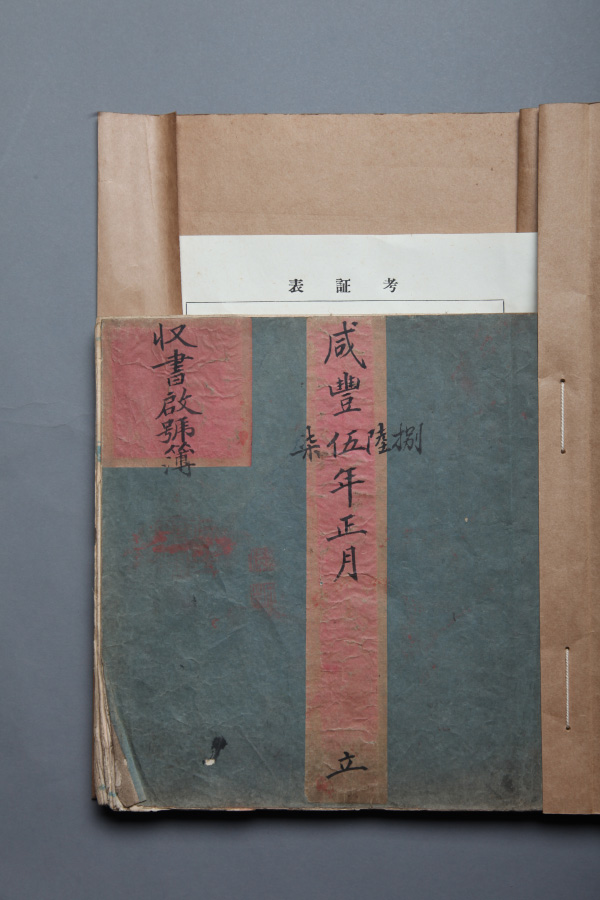 考証表
咸豐伍年正月 立
捌陸柒
収書啟號簿